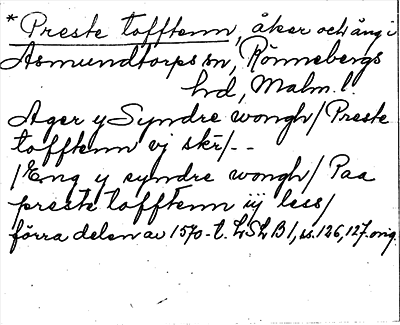 * Preste tofftenn, åker och äng i
Asmundtorps sn, Rönnebergs
hd, Malm. l.
Ager y Syndre wongh / Preste
tofftenn vj skr / - -
/ Eng y syndre wongh / Paa
preste tofftenn iij less /
förra delen av 1570-t. LSLB 1, ss. 126, 127. orig.